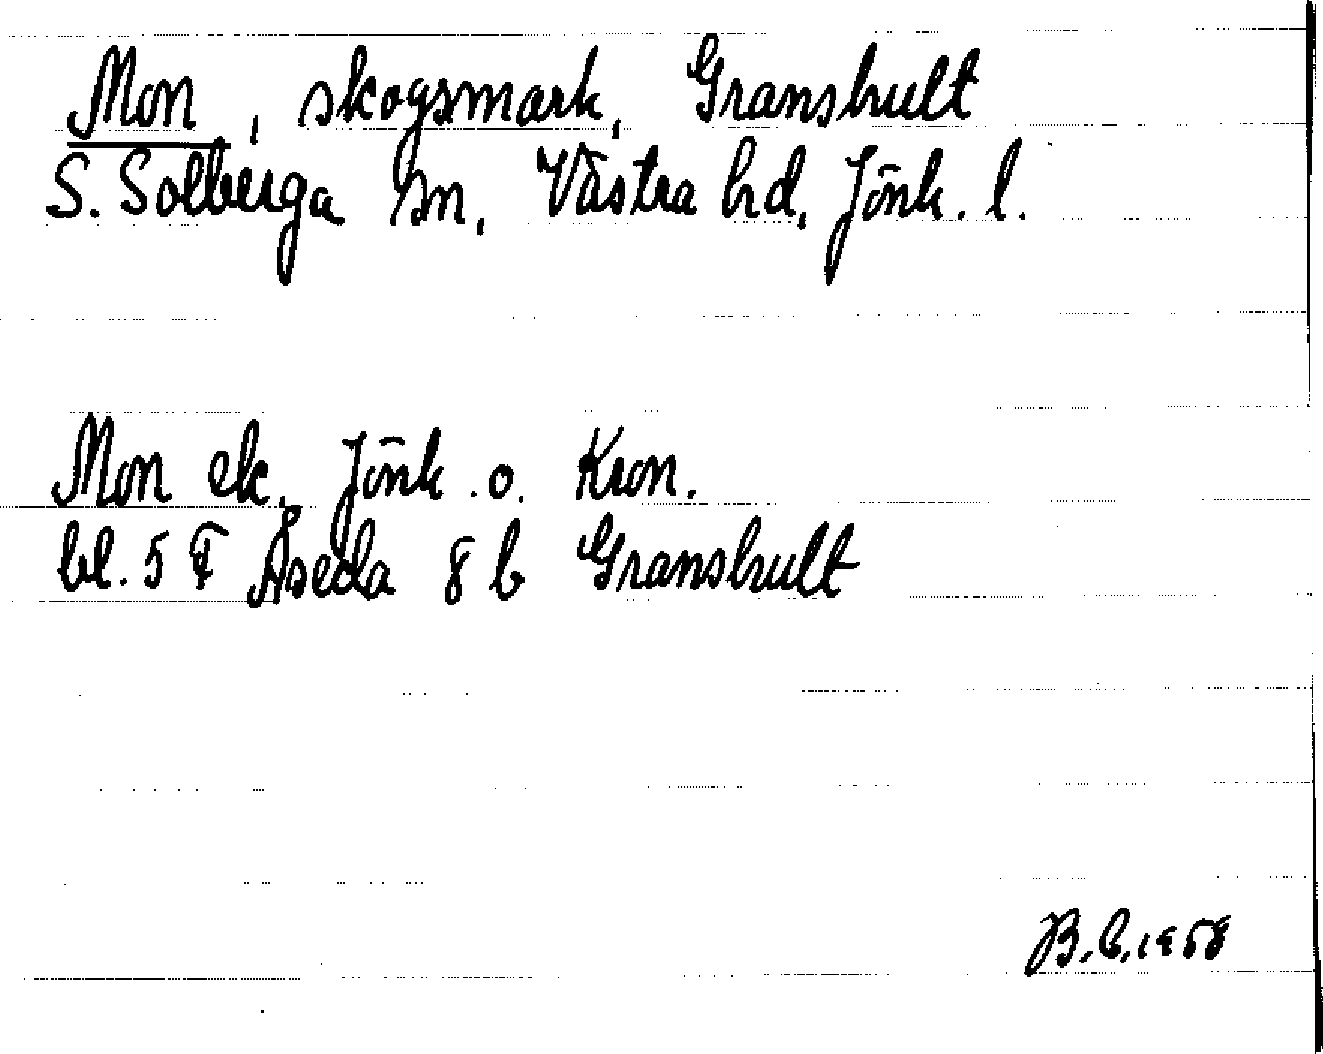 Mon, skogsmark, Granshult
S. Solberga sn, Västra hd, Jönk. l.
Mon ek. Jönk. o. Kron.
bl. 5 F Åseda 8 b Granshult
B.C. 1958